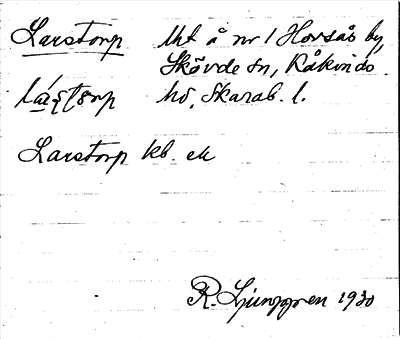 Larstorp lht å nr 1 Horsås by,
Skövde sn, Kåkinds
hd, Skarab. l.
Larstorp kb. ek
R. Ljunggren 1930